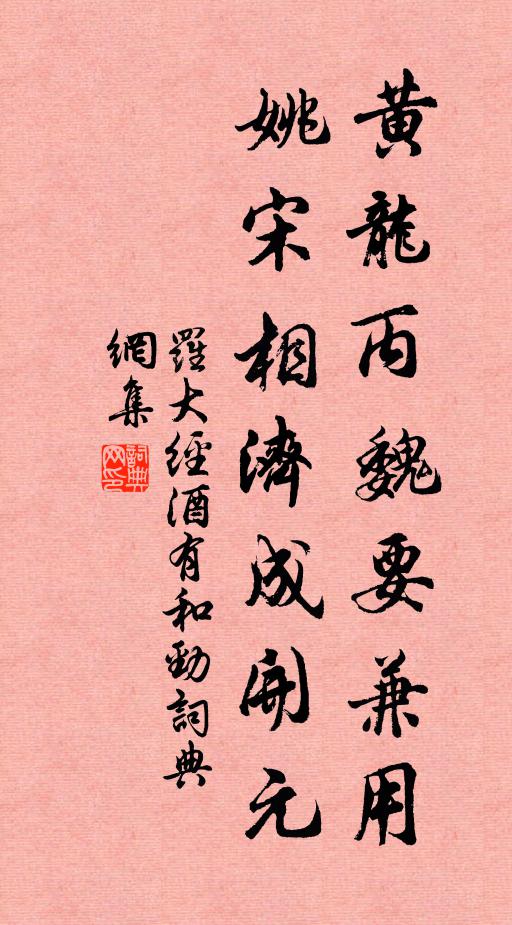 黄龍丙魏要兼用
姚宋相濟成開元
羅大經酒有和勁詞典
網集
詞典
网印